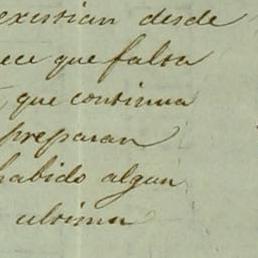 existian desde
ece que falta
, que continua
preparan
habido algun
ultima